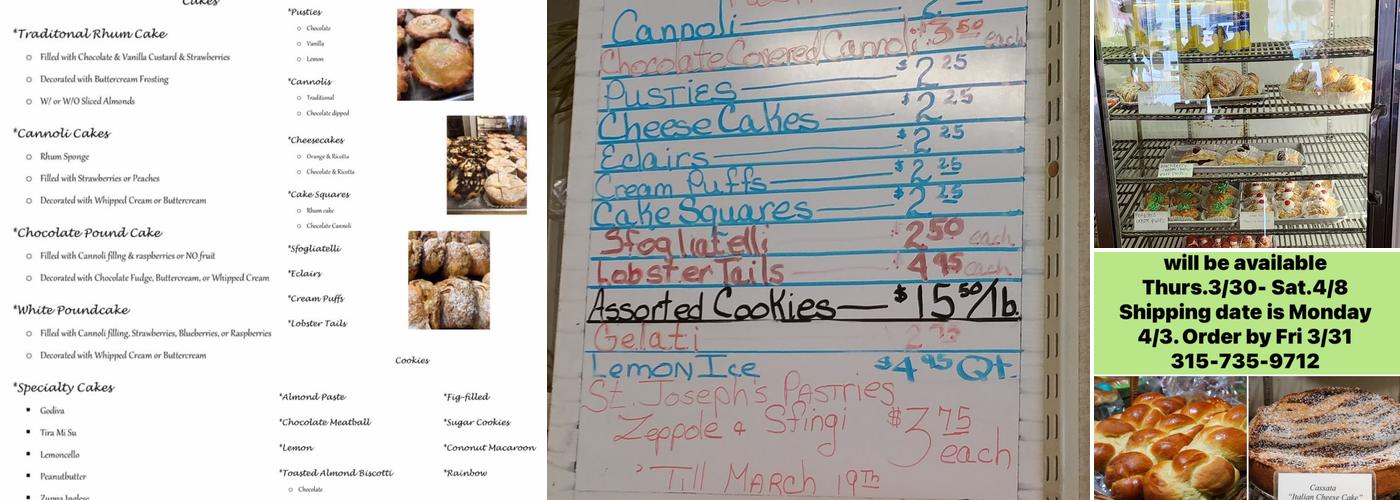 Cakes
*Traditonal Rhum Cake
Filled with Chocolate & Vanilla Custard & Strawberries
Decorated with Buttercream Frosting
W/ or W/O Sliced Almonds
*Cannoli Cakes
Rhum Sponge
Filled with Strawberries or Peaches
Decorated with Whipped Cream or Buttercream
*Chocolate Pound Cake
Filled with Cannoli fillng & raspberries or NO fruit
Decorated with Chocolate Fudge, Buttercream, or Whipped Cream
*White Poundcake
Filled with Cannoli filling, Strawberries, Blueberries, or Raspberries
Decorated with Whipped Cream or Buttercream
*Specialty Cakes
Godiva
Tira Mi Su
Lemoncello
Peanutbutter
Zuppa Inglese
*Pusties
Chocolate
Vanilla
Lemon
*Cannolis
Traditional
Chocolate dipped
*Cheesecakes
Orange & Ricotta
Chocolate & Ricotta
*Cake Squares
Rhum cake
Chocolate Cannoli
*Sfogliatelli
*Eclairs
*Cream Puffs
*Lobster Tails
Cookies
*Almond Paste
*Chocolate Meatball
*Lemon
*Toasted Almond Biscotti
Chocolate
*Fig-filled
*Sugar Cookies
*Cononut Macaroon
*Rainbow
Cannoli
Chocolate Covered Cannoli $3.50 each
Pusties $2.25
Cheese Cakes $2.25
Eclairs $2.25
Cream Puffs $2.25
Cake Squares $2.25
Sfogliatelli 2.50 each
Lobster Tails 4.95 each
Assorted Cookies $15.50/lb.
Gelati
Lemon Ice $4.95 Qt.
St. Joseph's Pastries
Zeppole & Sfingi $3.75 each
'Till March 19th
will be available
Thurs.3/30- Sat.4/8
Shipping date is Monday
4/3. Order by Fri 3/31
315-735-9712
Cassata
"Italian Cheese Cake"